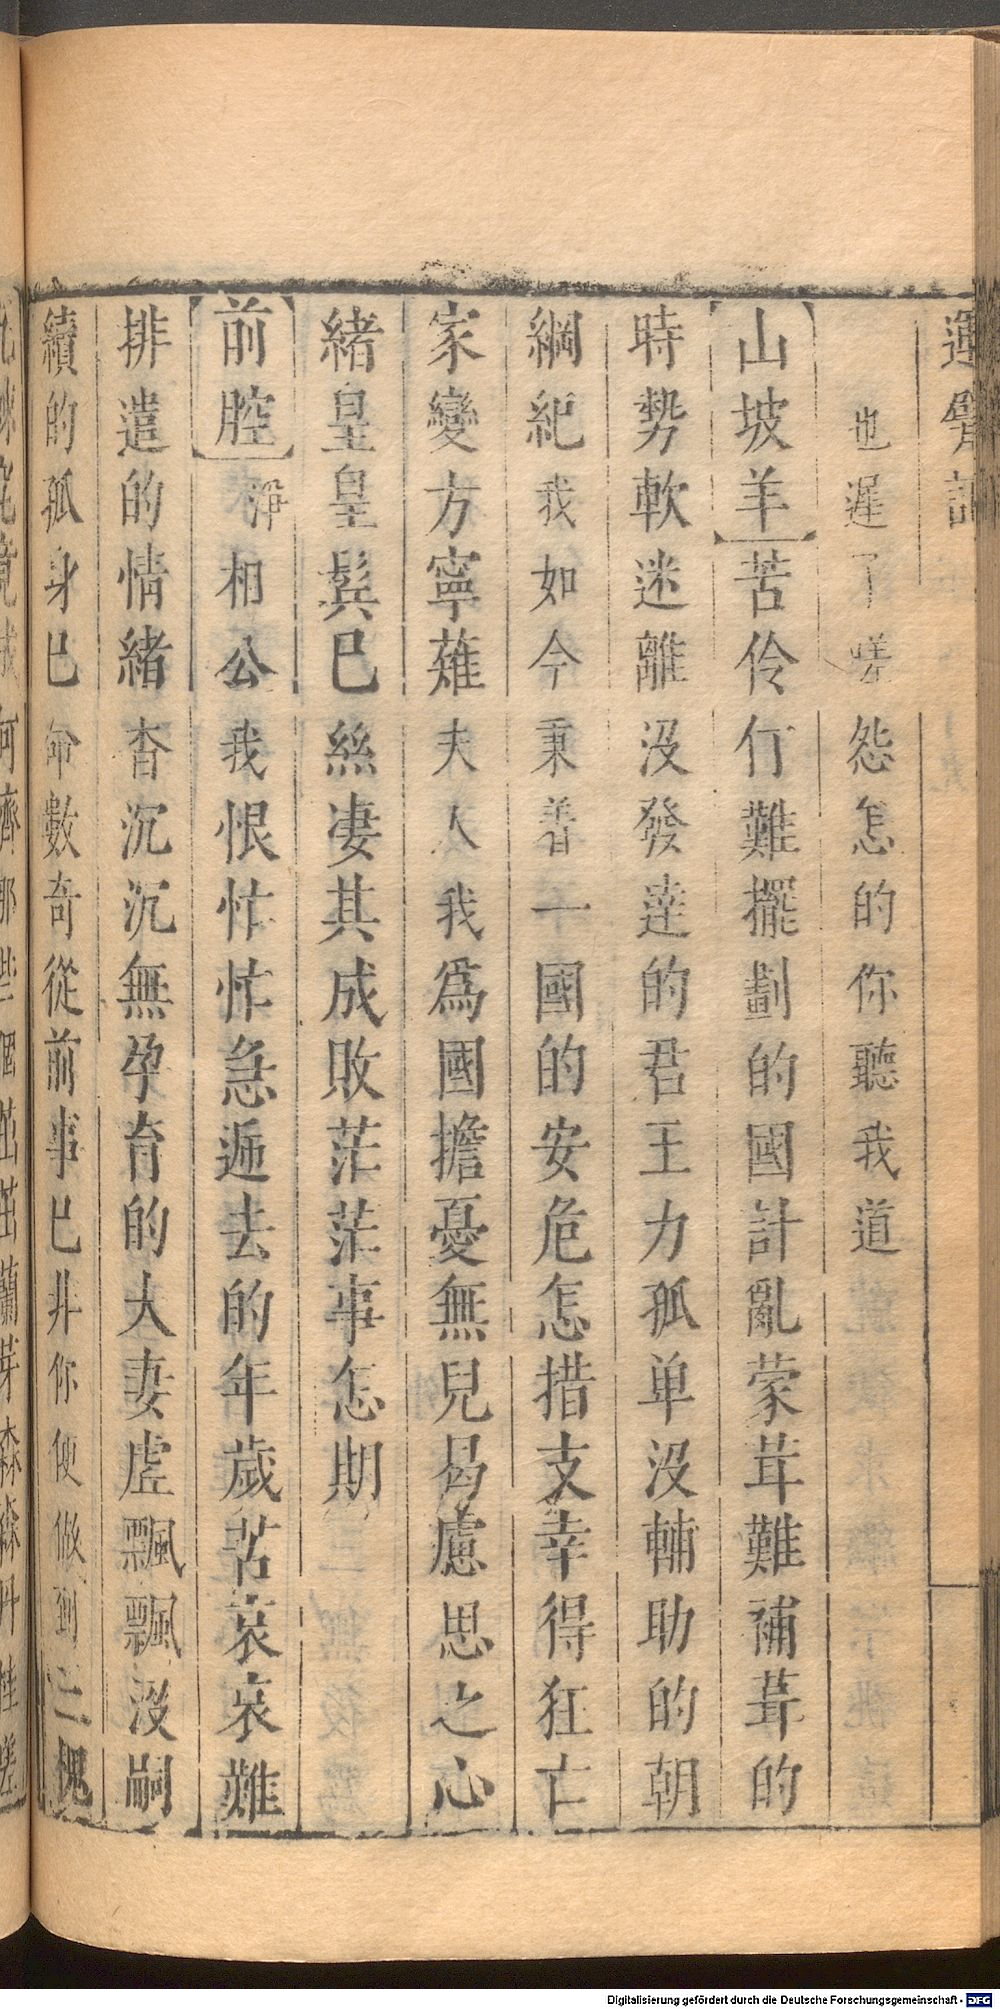 運甓記
也遲了嗟怨怎的你聽我道
【山坡羊】苦伶仃難擺劃的國計亂蒙茸難補葺的
時勢軟迷離沒發達的君王力孤单沒輔助的朝
綱紀我如今秉着一國的安危怎措支幸得狂亡
家變方寧薙夫人我爲國擔憂無兒曷慮思之心
緒皇皇鬓已絲凄其成敗茫茫事怎期
【前腔】淨相公我恨忙忙急遞去的年歲苦哀哀難
排遣的情緒杳沉沉無孕育的夫妻虛飄飄沒嗣
續的孤身已命數奇從前事已非你便做到三槐
何濟那些個茁茁蘭芽森森丹桂
Digitalisierung gefördert durch die Deutsche Forschungsgemeinschaft - DFG